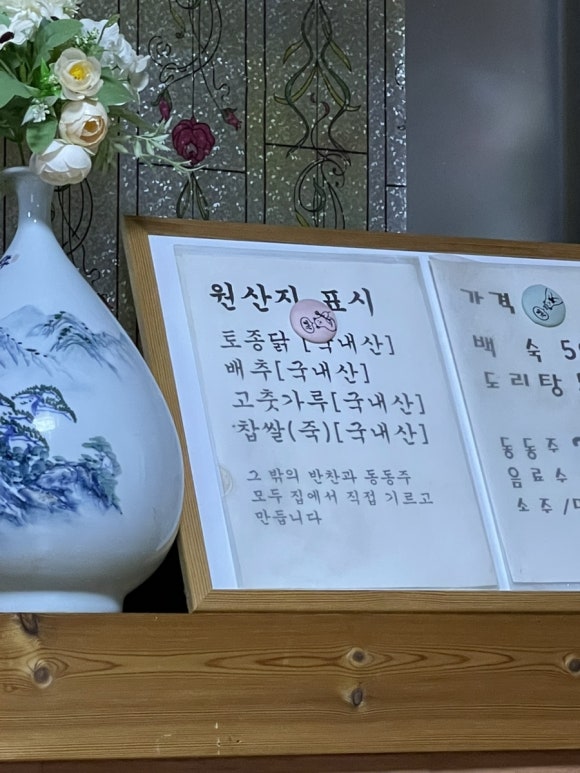 원산지 표시
토종닭 [국내산]
배추[국내산]
고춧가루[국내산]
찹쌀(죽)[국내산]
그 밖의 반찬과 동동주
모두 집에서 직접 기르고
만듭니다
가격
백 숙 5
도리탕
동동주
음료수
소주/